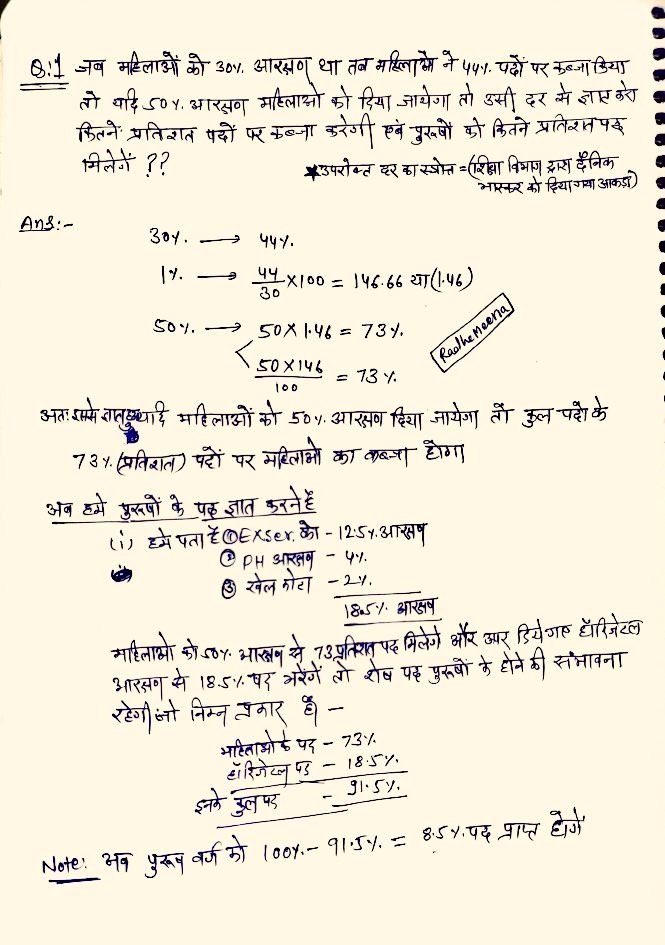 Q:1 जब महिलाओं को 30% आरक्षण था तब महिलाओ ने 44% पदों पर कब्जा किया
तो यदि 50% आरक्षण महिलाओ को दिया जायेगा तो उसी दर से ज्ञात करो
कितने प्रतिशत पदों पर कब्जा करेगी एवं पुरूषों को कितने प्रतिशत पद
मिलेगें ??
*उपरोक्त दर का स्त्रोत = (शिक्षा विभाग द्वारा दैनिक
भास्कर को दिया गया आकडा)
Ans:-
30% → 44%
1% → 44/30 ×100 = 146.66 या (1.46)
50% → 50×1.46 = 73%
RadheMeena
50×146/100 = 73%
अतः यदि महिलाओं को 50% आरक्षण दिया जायेगा तो कुल पदो के
73% (प्रतिशत) पदों पर महिलाओ का कब्जा होगा
अब हमे पुरूषों के पद ज्ञात करने है
(i) हमे पता है ① EXSer. का - 12.5% आरक्षण
② PH आरक्षण - 4%
③ खेल कोटा - 2%
18.5% आरक्षण
महिलाओ को 50% आरक्षण से 73 प्रतिशत पद मिलेगे और ऊपर दिये गए हॉरिजेटल
आरक्षण से 18.5% पद भरेगें तो शेष पद पुरूषों के होने की संभावना
रहेगी जो निम्न प्रकार है -
महिलाओ के पद - 73%
हॉरिजेटल पद - 18.5%
इनके कुल पद - 91.5%
Note: अब पुरूष वर्ग को 100% - 91.5% = 8.5% पद प्राप्त होगें